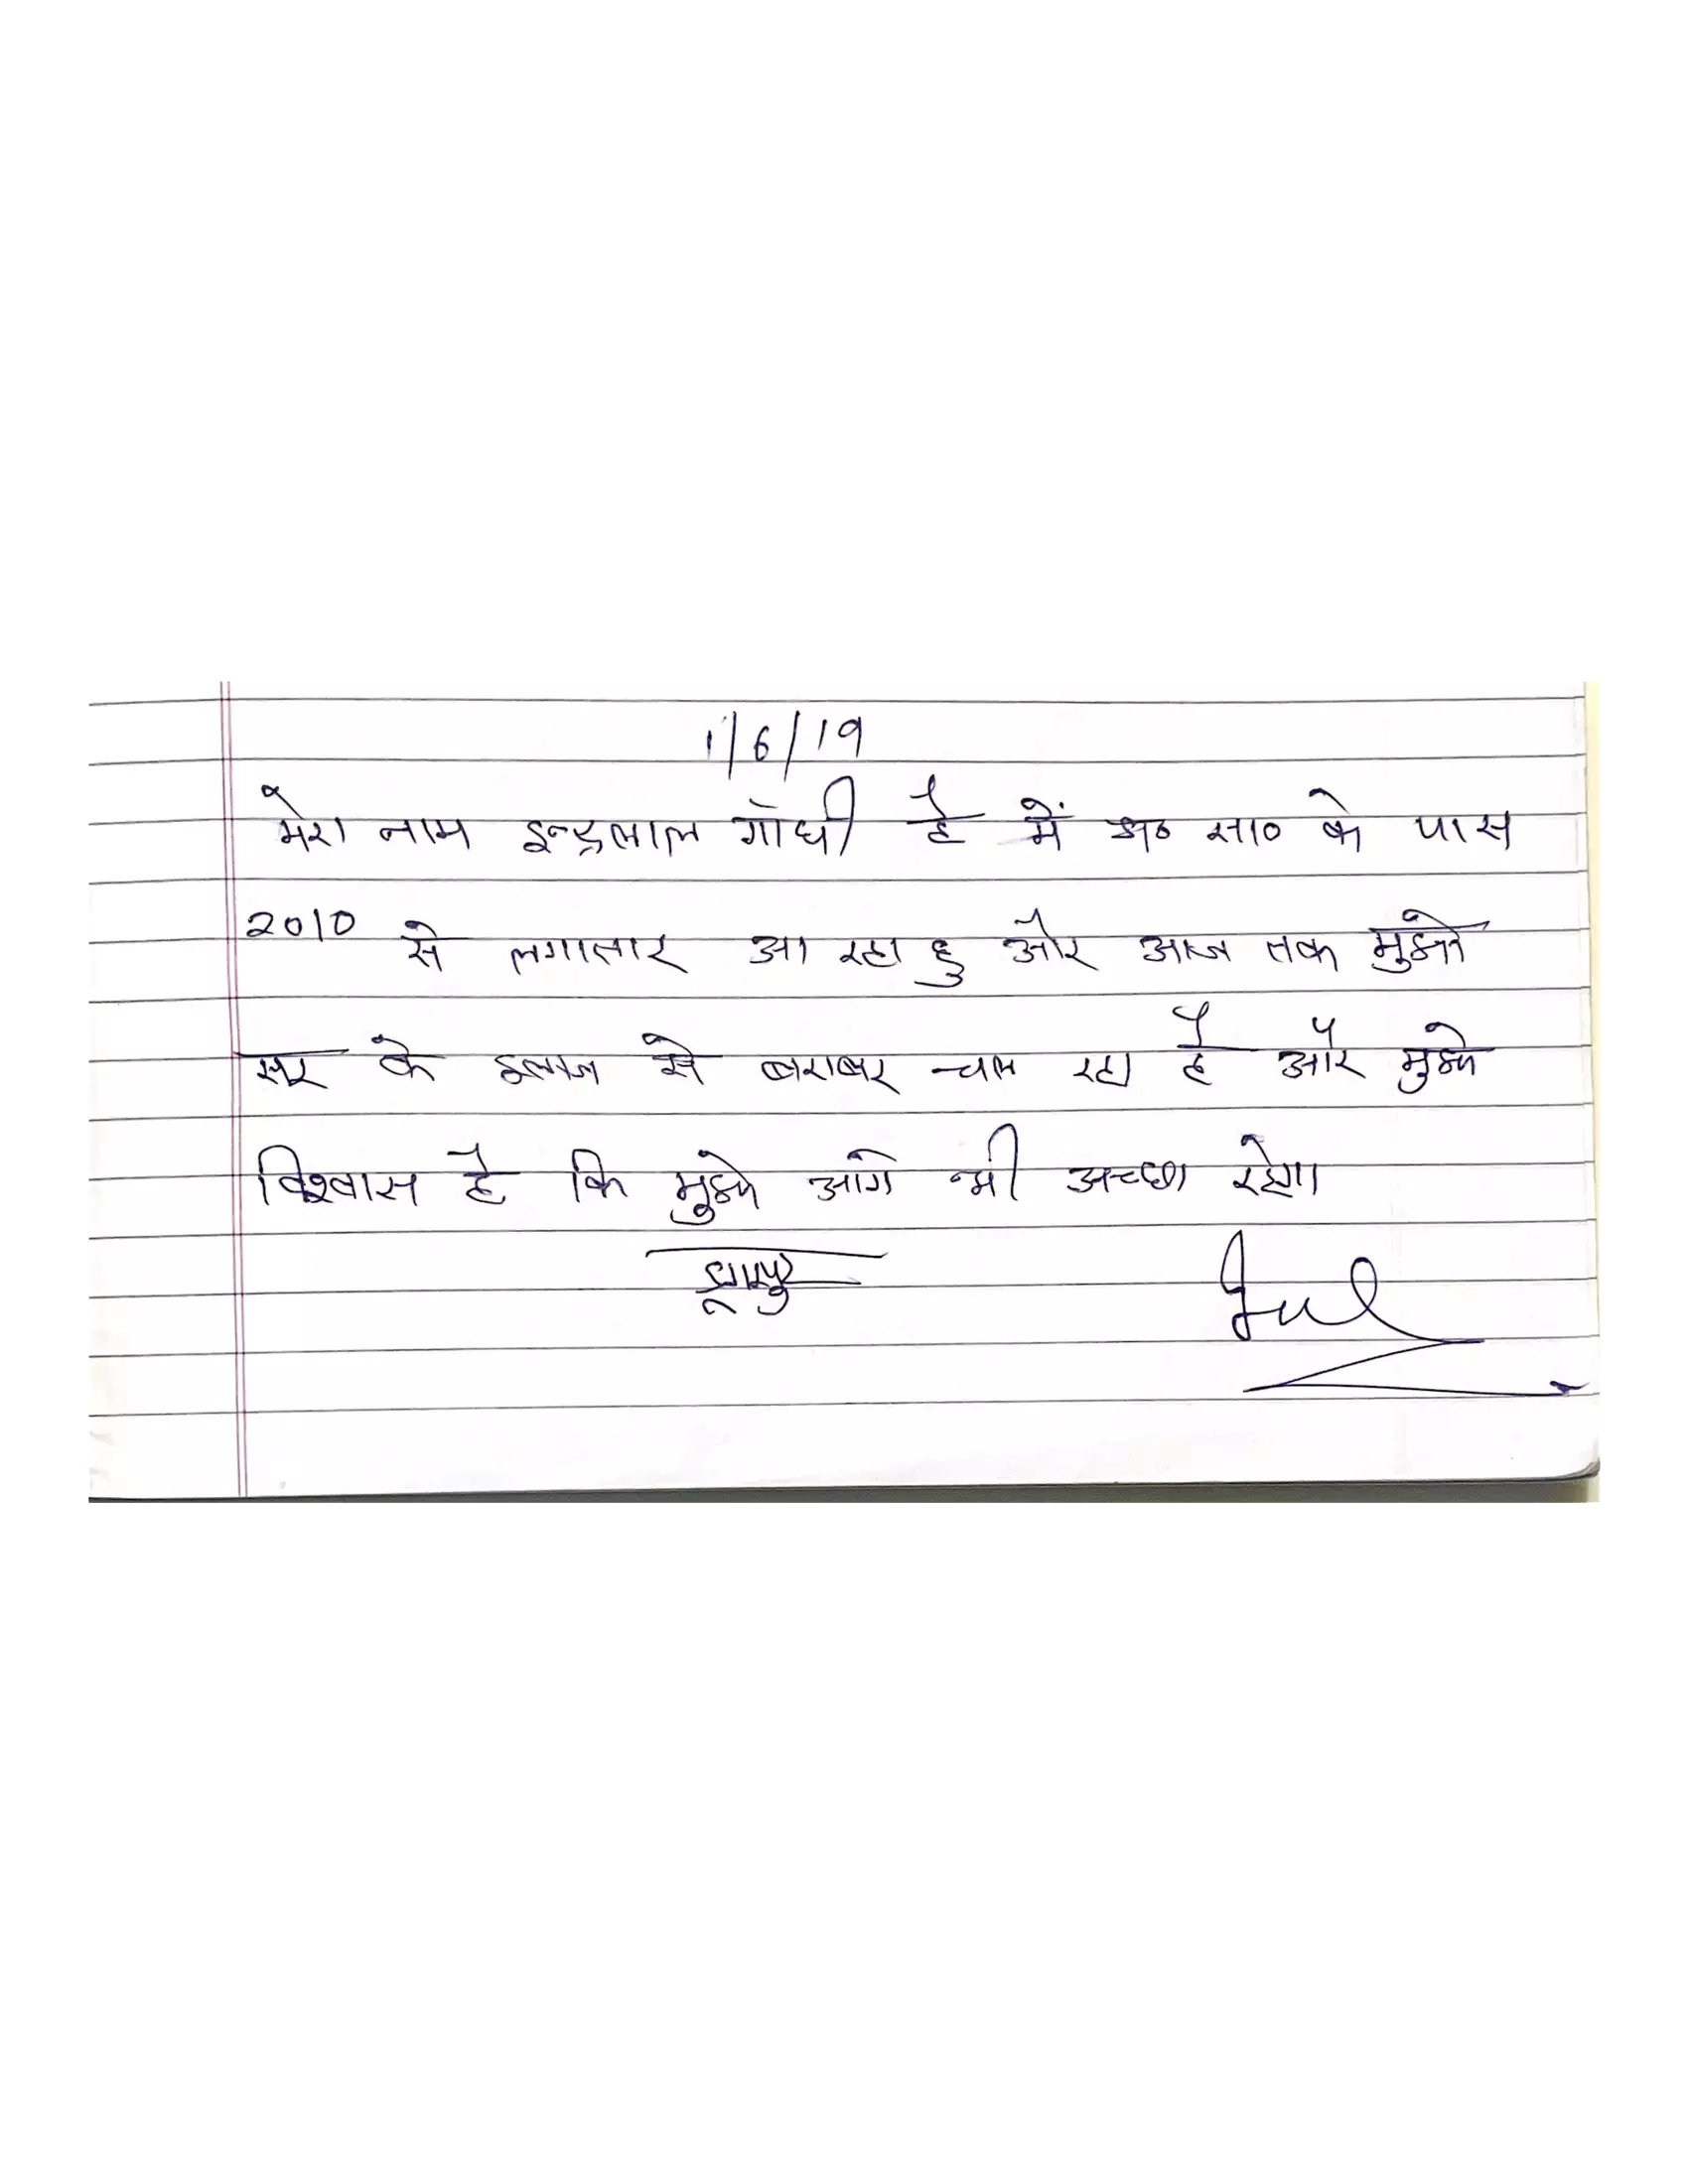 1/6/19
मेरा नाम इन्द्रलाल गाँधी है में डा० सा० के पास
2010 से लगातार आ रहा हु और आज तक मुझे
सर के इलाज से बराबर चल रहा है और मुझे
विश्वास है कि मुझे आगे भी अच्छा रहेगा